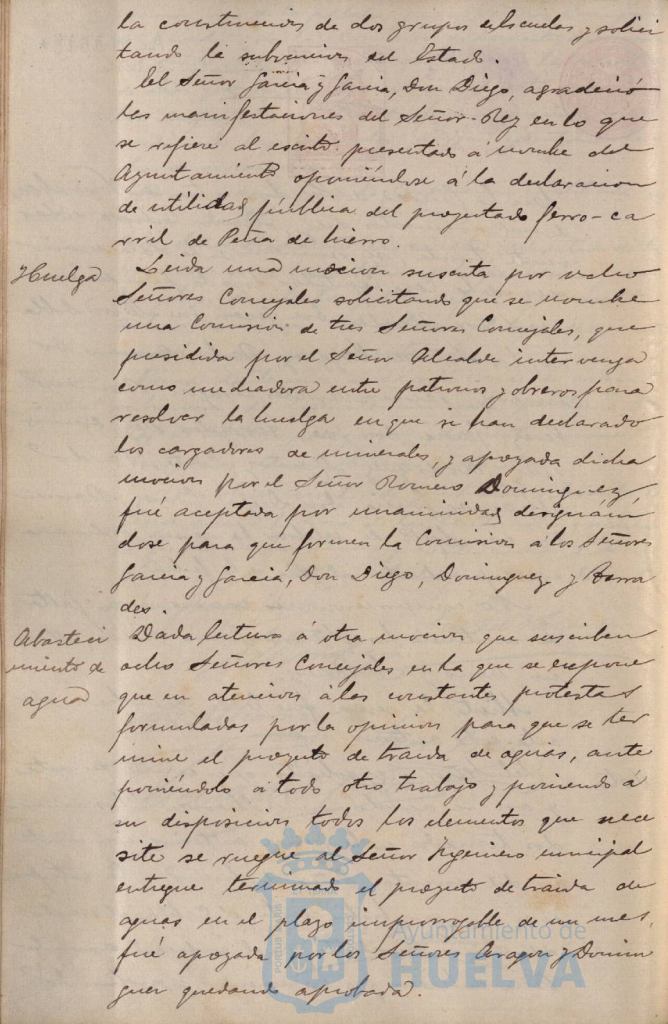 la construccion de dos grupos de Escuelas y solici
tando la subvencion del Estado.
El Señor Garcia y Garcia, Don Diego, agradeció
las manifestaciones del Señor Rey en lo que
se refiere al escrito presentado á nombre del
Ayuntamiento oponiéndose á la declaracion
de utilidad pública del proyectado ferro-ca
rril de Peña de hierro.
Huelga
Leida una mocion suscrita por ocho
Señores Concejales solicitando que se nombre
una Comision de tres Señores Concejales, que
presidida por el Señor Alcalde intervenga
como mediadora entre patronos y obreros para
resolver la huelga en que se han declarado
los cargadores de minerales, y apoyada dicha
mocion por el Señor Romero Dominguez
fué aceptada por unanimidad designán
dose para que formen la Comision á los Señores
Garcia y Garcia, Don Diego, Dominguez y Barra
des.
Abasteci
miento de
agua
Dada lectura á otra mocion que suscriben
ocho Señores Concejales en la que se expone
que en atencion á las constantes protestas
formuladas por la opinion para que se ter
mine el proyecto de traida de aguas, ante
poniéndolo á todo otro trabajo y poniendo á
su disposicion todos los elementos que nece
site se ruegue al Señor Ingeniero municipal
entregue terminado el proyecto de traida de
aguas en el plazo improrrogable de un mes,
fué apoyada por los Señores Aragon y Domin
guez quedando aprobada.
Ayuntamiento de
HUELVA